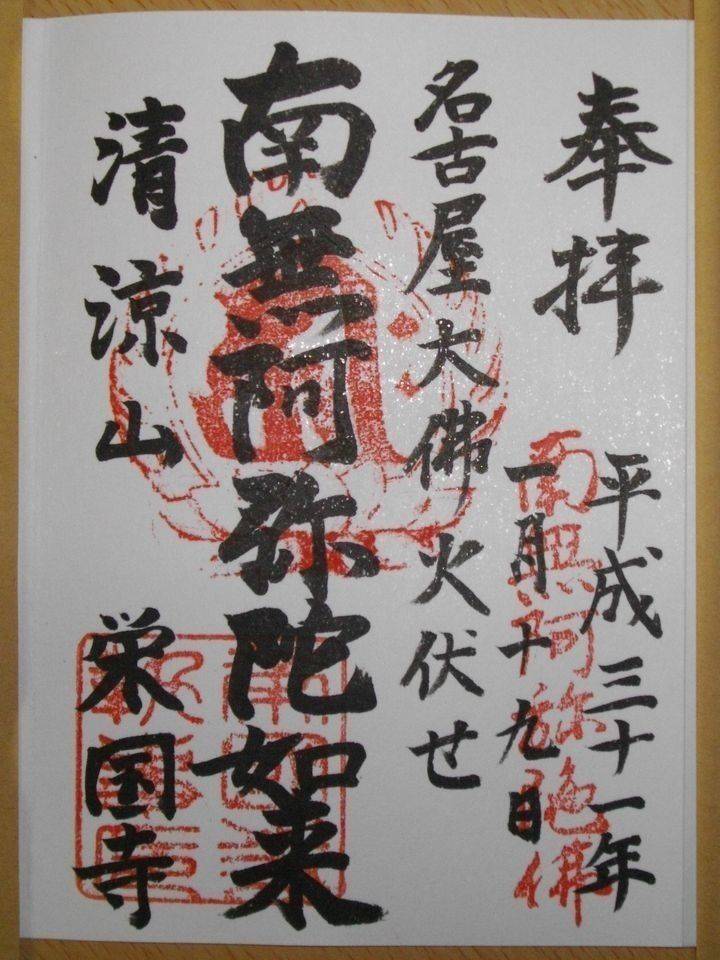 奉拝
平成三十一年
一月十九日
南無阿弥陀佛
名古屋大佛火伏せ
南無阿弥陀如来
清涼山
栄国寺